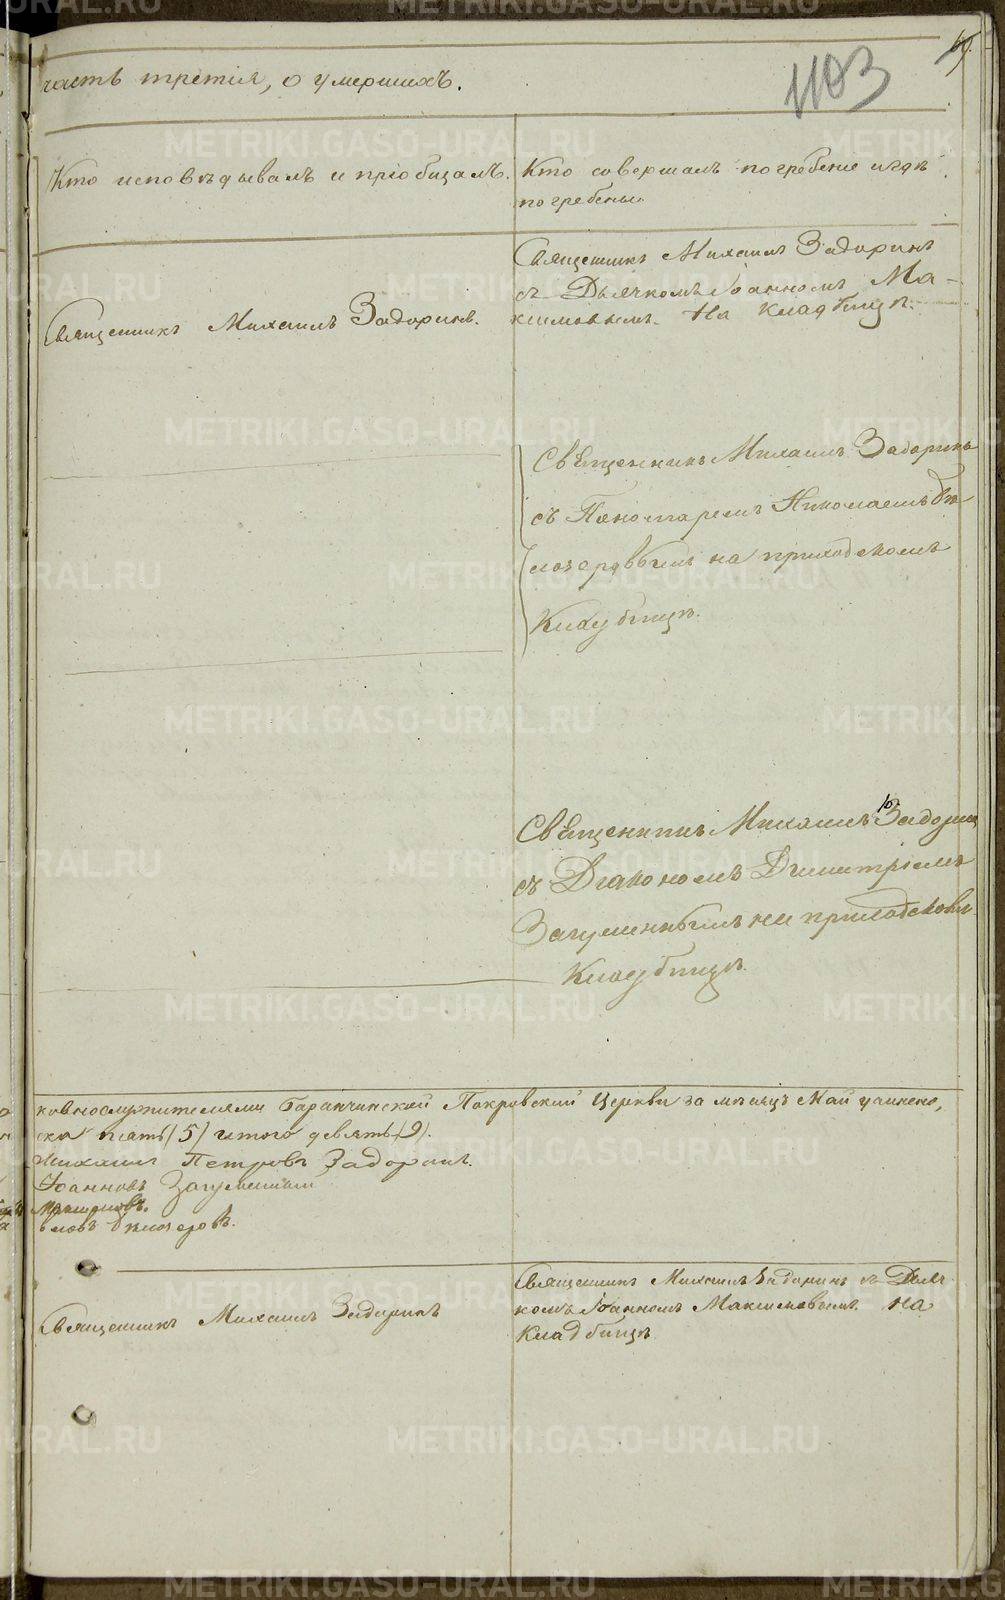 69.
1103
часть третія, о умершихъ.
Кто исповѣдывалъ и пріобщалъ.
Кто совершалъ погребеніе и гдѣ
погребены.
Священникъ Михаилъ Задоринъ.
Священникъ Михаилъ Задоринъ
съ Дьячкомъ Іоанномъ Ма-
ксимовымъ. На кладбищѣ.
Священникъ Михаилъ Задоринъ
съ Пономаремъ Николаемъ Бѣ-
лозеровымъ на приходскомъ
Кладбищѣ.
Священникъ Михаилъ Задорин
съ Діакономъ Димитріемъ
Загуменнымъ на приходскомъ
Кладбищѣ.
ковнослужителями Баранчинской Покровской Церкви за мѣсяцъ Май
пять (5) итого девять (9).
Михаилъ Петровъ Задоринъ.
Іоанновъ Загуменный
Священникъ Михаилъ Задоринъ
Священникъ Михаилъ Задоринъ съ Дьяч
комъ Іоанномъ Максимовымъ. На
Кладбищѣ.
METRIKI.GASO-URAL.RU